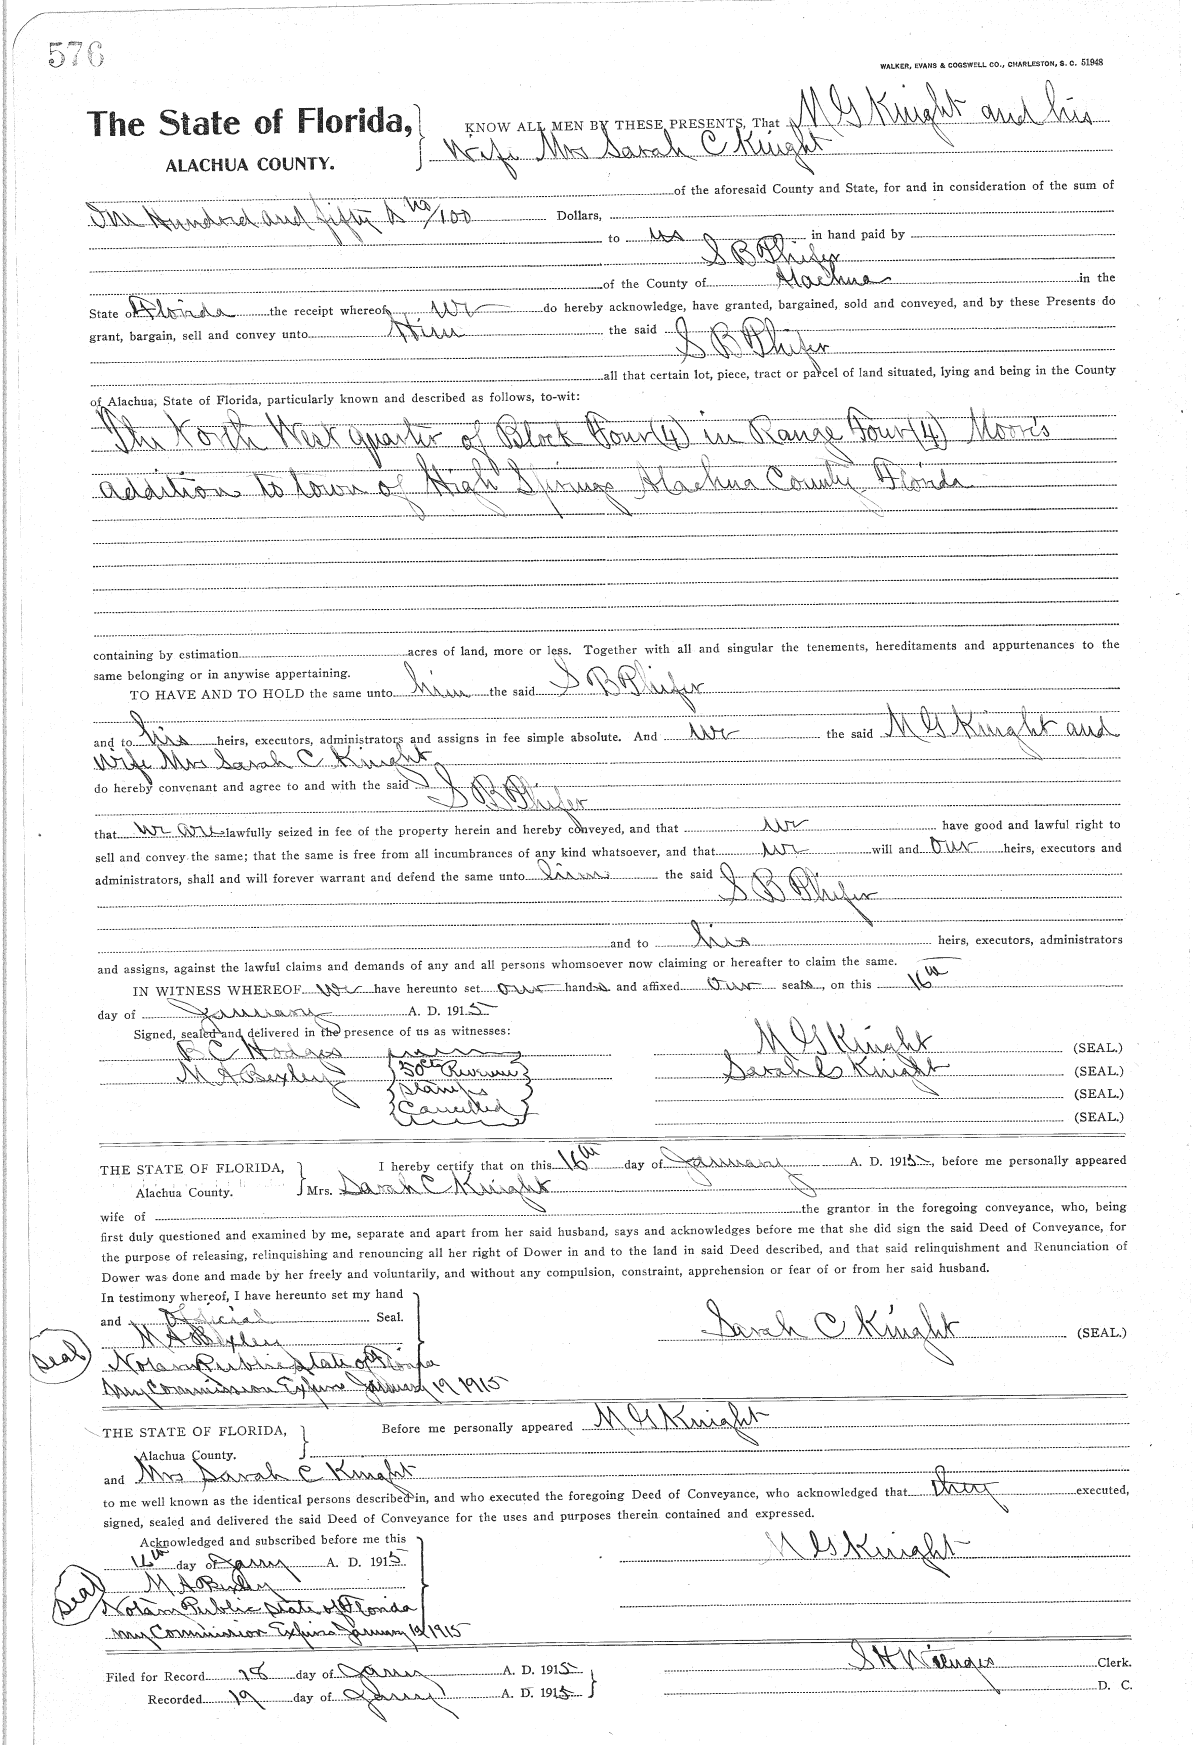 576
WALKER, EVANS & COGSWELL CO., CHARLESTON, S. C. 51948
The State of Florida,
ALACHUA COUNTY.
KNOW ALL MEN BY THESE PRESENTS, That M G Knight and his
Wife Mrs Sarah C Knight
of the aforesaid County and State, for and in consideration of the sum of
One Hundred and fifty & no/100 Dollars,
to us in hand paid by
S B Phifer
of the County of Alachua in the
State of Florida the receipt whereof we do hereby acknowledge, have granted, bargained, sold and conveyed, and by these Presents do
grant, bargain, sell and convey unto Him the said S B Phifer
all that certain lot, piece, tract or parcel of land situated, lying and being in the County
of Alachua, State of Florida, particularly known and described as follows, to-wit:
The North West quarter of Block Four (4) in Range Four (4) Moores
addition to town of High Springs Alachua County Florida
containing by estimation acres of land, more or less. Together with all and singular the tenements, hereditaments and appurtenances to the
same belonging or in anywise appertaining.
TO HAVE AND TO HOLD the same unto him the said S B Phifer
and to his heirs, executors, administrators and assigns in fee simple absolute. And we the said M G Knight and
Wife Mrs Sarah C Knight
do hereby convenant and agree to and with the said S B Phifer
that we are lawfully seized in fee of the property herein and hereby conveyed, and that we have good and lawful right to
sell and convey the same; that the same is free from all incumbrances of any kind whatsoever, and that we will and our heirs, executors and
administrators, shall and will forever warrant and defend the same unto him the said S B Phifer
and to his heirs, executors, administrators
and assigns, against the lawful claims and demands of any and all persons whomsoever now claiming or hereafter to claim the same.
IN WITNESS WHEREOF we have hereunto set our hands and affixed our seals, on this 16th
day of January A. D. 1915
Signed, sealed and delivered in the presence of us as witnesses:
R C Hodges
M A Bexley
50cts Revenue
Stamps
Cancelled
M G Knight (SEAL.)
Sarah C Knight (SEAL.)
(SEAL.)
(SEAL.)
THE STATE OF FLORIDA,
Alachua County.
I hereby certify that on this 16th day of January A. D. 1915, before me personally appeared
Mrs. Sarah C Knight
wife of the grantor in the foregoing conveyance, who, being
first duly questioned and examined by me, separate and apart from her said husband, says and acknowledges before me that she did sign the said Deed of Conveyance, for
the purpose of releasing, relinquishing and renouncing all her right of Dower in and to the land in said Deed described, and that said relinquishment and Renunciation of
Dower was done and made by her freely and voluntarily, and without any compulsion, constraint, apprehension or fear of or from her said husband.
In testimony whereof, I have hereunto set my hand
and Official Seal.
M A Bexley
Seal
Notary Public State of Florida
My Commission Expires January 19 1915
Sarah C Knight (SEAL.)
THE STATE OF FLORIDA,
Alachua County.
Before me personally appeared M G Knight
and Mrs Sarah C Knight
to me well known as the identical persons described in, and who executed the foregoing Deed of Conveyance, who acknowledged that they executed,
signed, sealed and delivered the said Deed of Conveyance for the uses and purposes therein contained and expressed.
Acknowledged and subscribed before me this
16th day of Jany A. D. 1915
M A Bexley
Seal
Notary Public State of Florida
My Commission Expires January 19 1915
M G Knight
Filed for Record 18 day of Jany A. D. 1915
Recorded 19 day of Jany A. D. 1915
S H Wienges Clerk.
D. C.